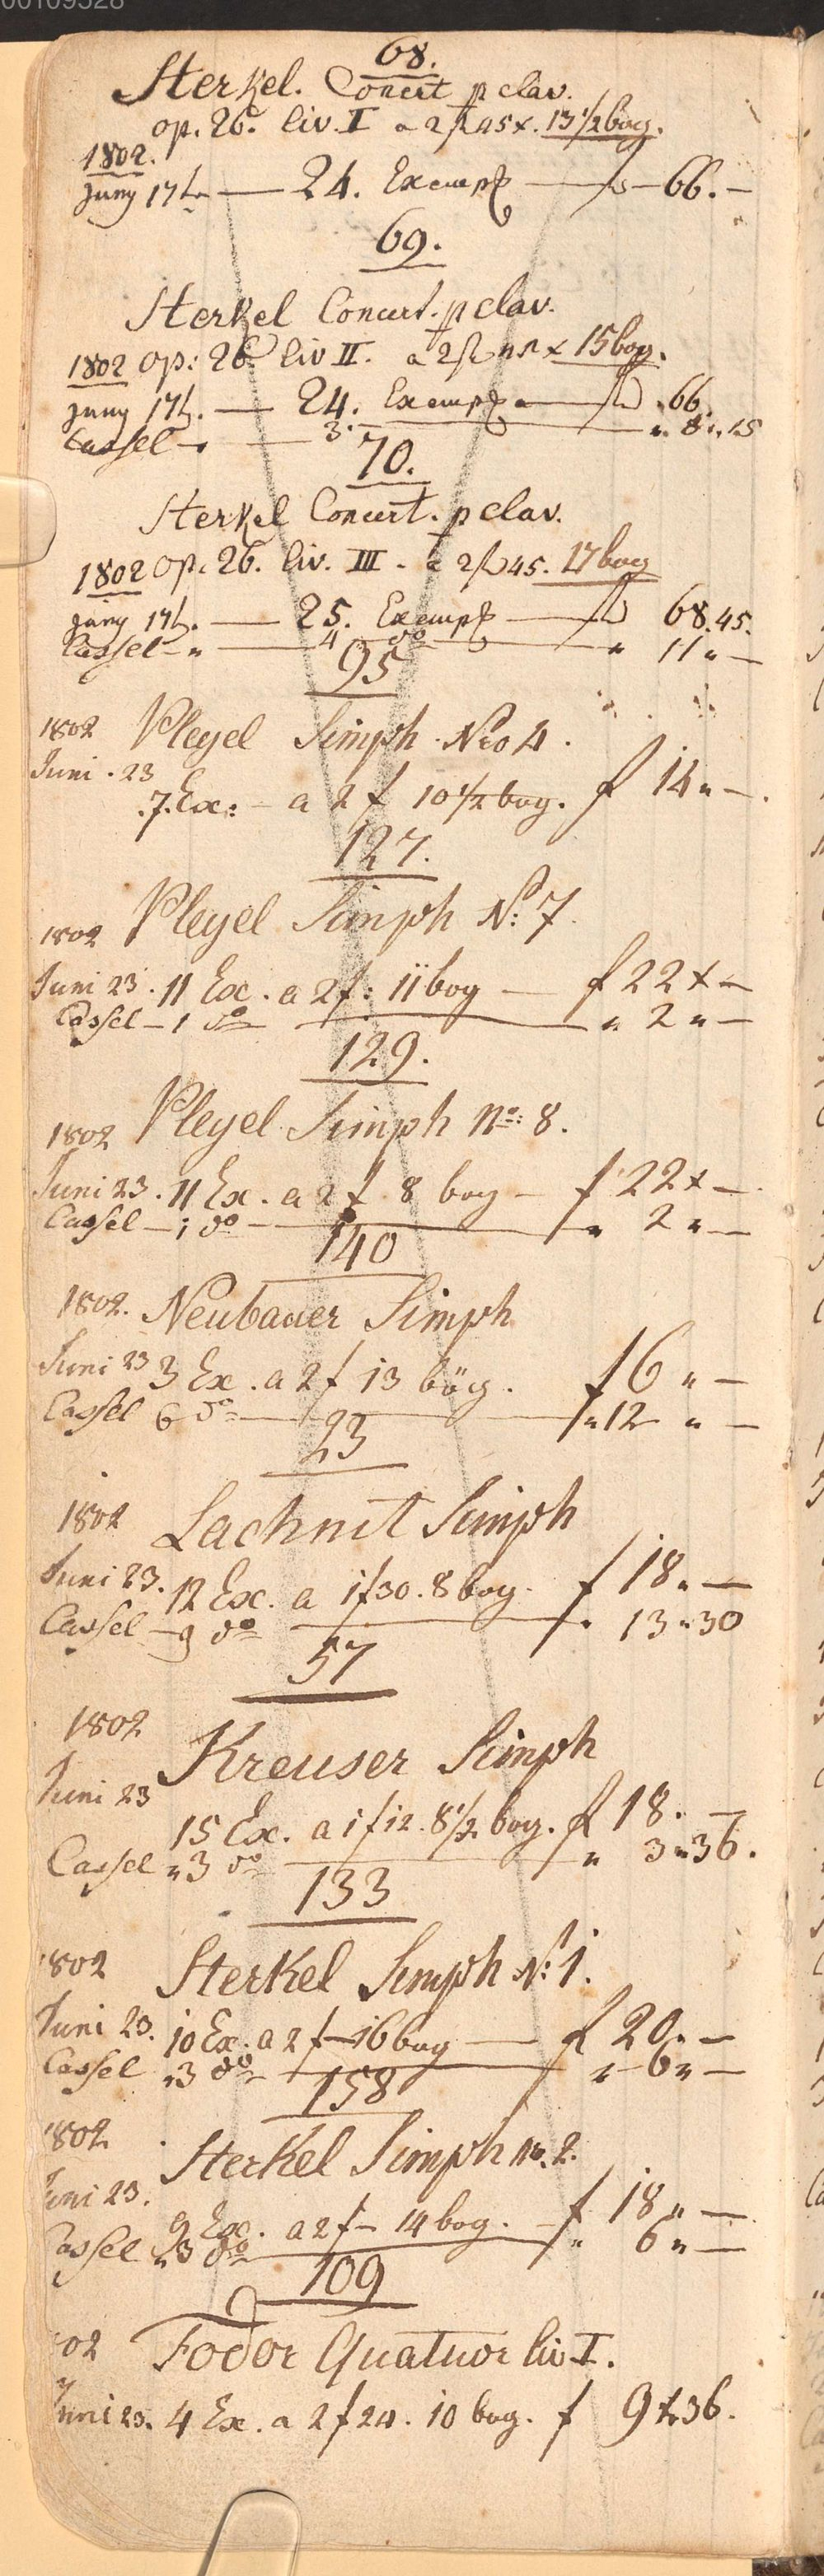 00109528
68.
Sterkel. Concert p clav.
op. 26. liv. I a 2f 45 x. 13 1/2 bog.
1802.
Juny 17t — 24. Exempl — f — 66. —
69.
Sterkel Concert. p clav.
1802 op: 26 liv II. a 2f x 15 bog.
Juny 17t. — 24. Exempl — f 66.
Cassel — " — 3. — " 8 " 15
70.
Sterkel Concert. p clav.
1802 op. 26. liv. III - a 2f 45. 17 bog
Juny 17t. — 25. Exempl — f 68.45.
Cassel — " — 4 do — " 11 " —
95
1802 Pleyel Simph. Nro 4.
Juni . 23
.7. Ex: — a 2 f 10 1/2 bog. f 14 " —.
127.
1802 Pleyel Simph No: 7.
Juni 23. 11 Ex. a 2f: 11 bog — f 22 x —
Cassel — 1 do — " 2 " —
129.
1802 Pleyel Simph No: 8.
Juni 23. 11 Ex. a 2 f 8 bog — f 22 x —
Cassel — 1 do — " 2 " —
140
1802. Neubauer Simph
Juni 23 3 Ex. a 2f 13 bög. f 6 " —
Cassel 6 do — f " 12 " —
23
1802 Lachnit Simph
Juni 23. 12 Ex. a 1f30. 8 bog. f 18 " —
Cassel — 9 do — f " 13 " 30
57
1802 Kreuser Simph
Juni 23
15 Ex. a 1f12. 8 1/2 bog. f 18. —
Cassel " 3 do — " 3 " 36.
133
1802 Sterkel Simph No: 1.
Juni 23. 10 Ex. a 2 f — 16 bog — f 20 " —
Cassel " 3 do — " 6 " —
158
1802 Sterkel Simph No. 2.
Juni 23.
9 Ex. a 2 f — 14 bog. — f 18 " —
Cassel " 3 do — f " 6 " —
109
02 Fodor Quatuor liv I.
Juni 23. 4 Ex. a 2 f 24. 10 bog. f 9 x 36.